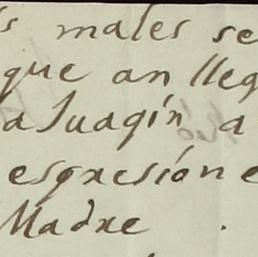 s males se
que an lleg
a Juaqín a
espresión e
Madre .